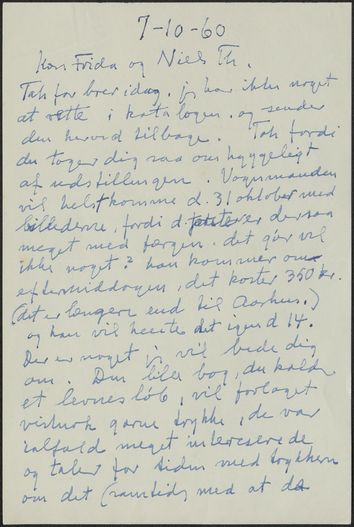 7-10-60
Kære Frida og Niels Th.
Tak for brev idag. jeg har ikke noget
at rette i kataloget. og sender
den hermed tilbage. Tak fordi
du tager dig saa omhyggeligt
af udstillingen. Vognmanden
vil helst komme d. 31 oktober med
billederne, fordi d. første er der saa
meget med færgen. det gør vel
ikke noget? han kommer om
eftermiddagen, det koster 350 kr.
(det er længere end til Aarhus.)
og han vil hente det igen d 14.
Der er noget jeg vil bede dig
om. Den lille bog, du kalder
et levnesløb, vil forlaget
gerne trykke, de var
ialfald meget interesserede
og taler for tiden med trykkeren
om det (samtidig med at de